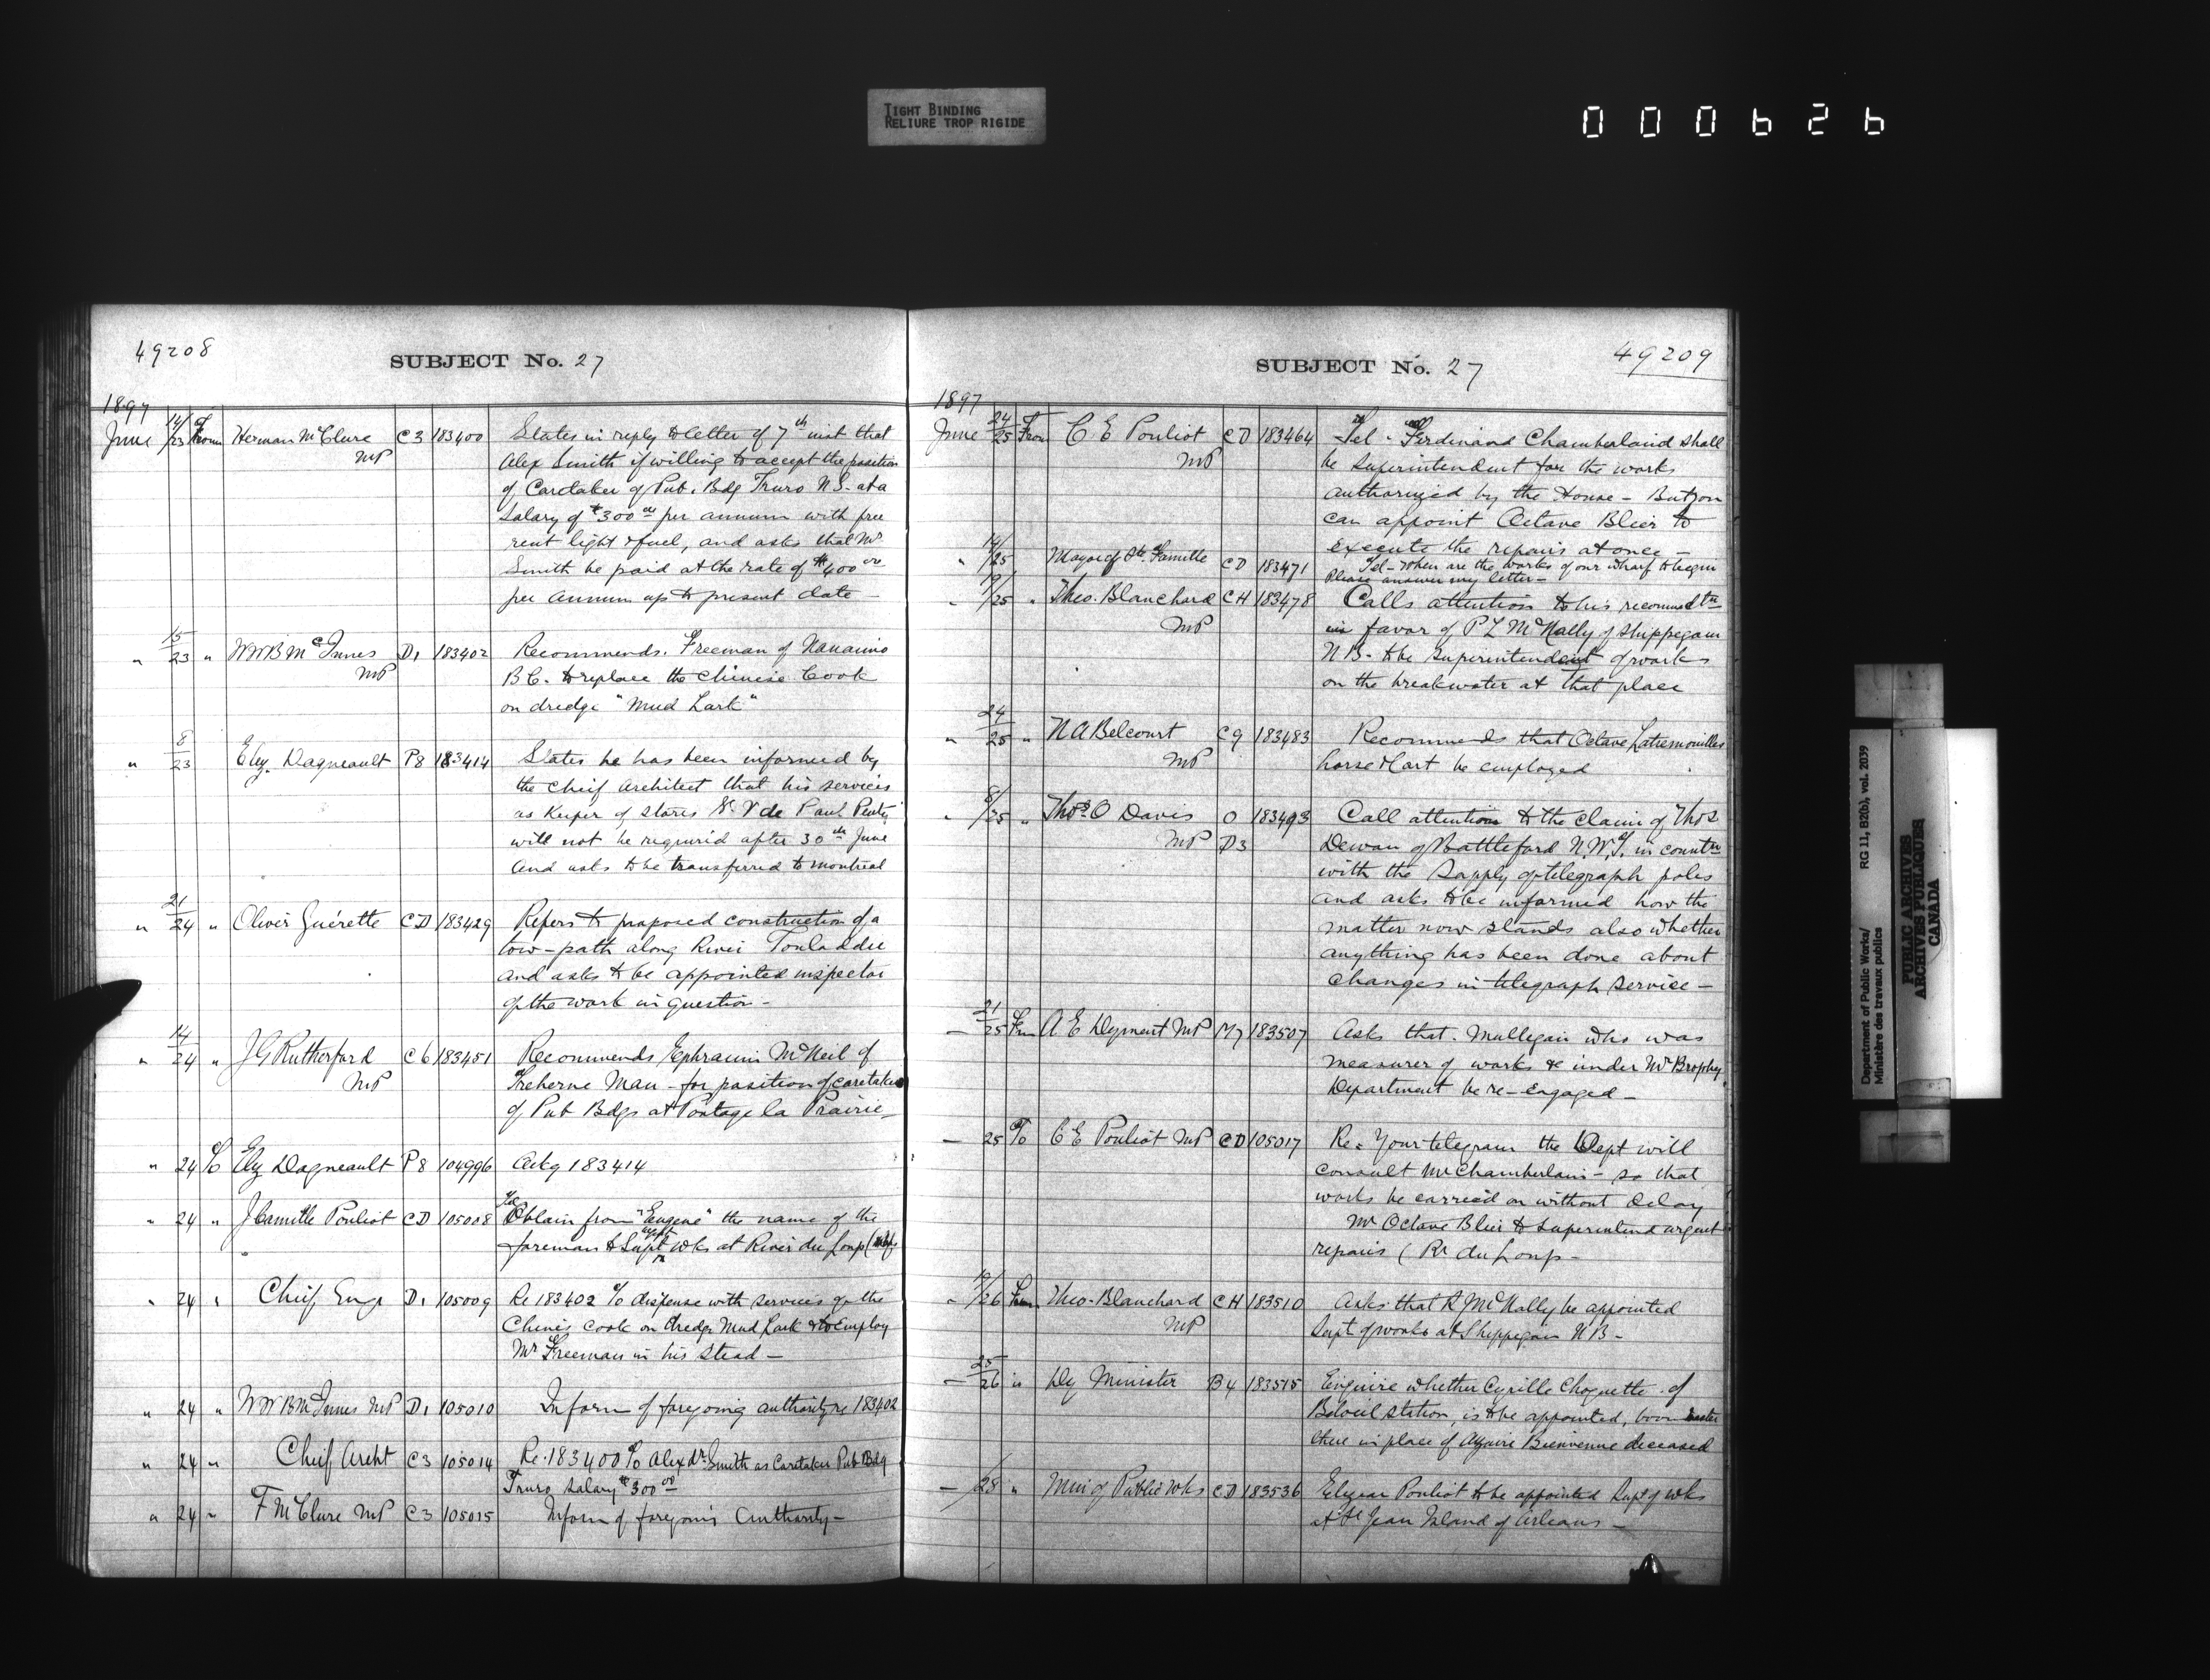 TIGHT BINDING
RELIURE TROP RIGIDE
000626
49208
SUBJECT No. 27
1897
June 14/23 From Herman McClure MP C3 183400 States in reply to letter of 7th inst that
Alex Smith if willing to accept the position
of Caretaker of Pub. Bdg Truro N.S. at a
salary of $300 00 per annum with free
rent light & fuel, and asks that Mr
Smith be paid at the rate of $400 00
per annum up to present date
" 15/23 " WWB McInnes MP D1 183402 Recommends. Freeman of Nanaimo
B.C. to replace the Chinese Cook
on dredge "Mud Lark"
" 8/23 Elz. Dagneault P8 183414 States he has been informed by
the Cheif Architect that his services
as Keeper of Stores St. V de Paul Penty
will not be required after 30th June
and asks to be transferred to Montreal
" 21/24 " Oliver Guérette CD 183429 Refers to proposed construction of a
tow-path along River Touladdie
and asks to be appointed inspector
of the work in question -
" 14/24 " JG Rutherford MP C6 183451 Recommends Ephraim McNeil of
Treherne Man - for position of caretaker
of Pub Bdgs at Portage la Prairie
" 24 To Elz Dagneault P8 104996 Ackg 183414
" 24 " J Camille Pouliot CD 105008 Tel Obtain from "Eugene" the name of the
foreman to Supt wks at River du Loup
" 24 " Cheif Eng D1 105009 Re 183402 To dispense with services of the
Chines cook on dredge Mud Lark & to employ
Mr Freeman in his stead -
" 24 " WWB McInnes MP D1 105010 Inform of foregoing authority re 183402
" 24 " Cheif Archt C3 105014 Re. 183400 To Alexdr. Smith as Caretaker Pub Bdg
Truro salary $300 00
" 24 " F McClure MP C3 105015 Inform of foregoing Authority -
SUBJECT No. 27
49209
1897
June 24/25 From C. E Pouliot MP CD 183464 Tel - Ferdinand Chamberland shall
be Superintendent for the works
authorized by the House - But you
can appoint Octave Blier to
execute the repairs at once -
" 14/25 Mayor of Ste. Famille CD 183471 Tel - When are the works of our wharf to begin
Please answer my letter -
" 19/25 " Theo. Blanchard MP CH 183478 Calls attention to his recommdtn
in favor of P L McNally of Shippegan
N.B. to be Superintendent of works
on the breakwater at that place
" 24/25 " N A Belcourt MP C9 183483 Recommends that Octave Latremouilles
horse & cart be employed
" 8/25 " Thos. O Davis MP O D3 183493 Call attention to the claim of Thos
Dewan of Battleford N.W.T. in conntn
with the supply of telegraph poles
and asks to be informed how the
matter now stands also whether
anything has been done about
changes in telegraph service -
- 21/25 From A E Dyment MP M7 183507 Asks that. Mullegan who was
measurer of works & under Mr Brophy
Department be re-engaged -
- 25 To C E Pouliot MP CD 105017 Re: Your telegram the Dept will
consult Mr Chamberlain - so that
works be carried on without delay
Mr Octave Blier to superintend urgent
repairs (Rr du Loup -
- 19/26 From Theo. Blanchard MP CH 183510 Asks that R J McNally be appointed
Supt of works at Shippegan N B -
- 25/26 " Dy Minister B4 183515 Enquire whether Cyrille Choquette of
Beloeil Station, is to be appointed, boom master
there in place of Bienvenue deceased
- /28 " Min of Public Wks CD 183536 Elzear Pouliot to be appointed Supt of wks
at St Jean Island of Orleans -
Department of Public Works/ RG 11, B2(b), vol. 2039
Ministère des travaux publics
PUBLIC ARCHIVES
ARCHIVES PUBLIQUES
CANADA